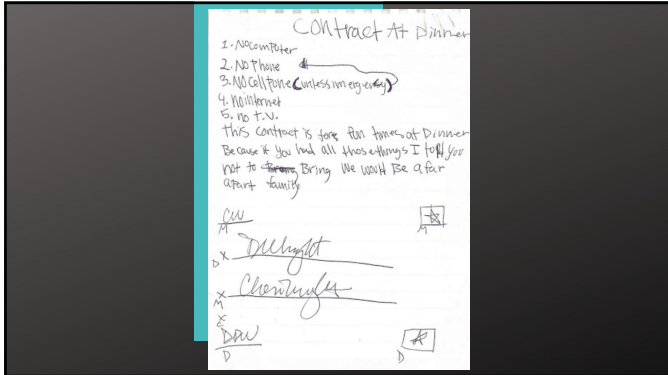 Contract At Dinner
1. No computer
2. NO Phone
3. NO Cellpone (unless im ergency)
4. no internet
5. no t.v.
This contract is for fun times at Dinner
Because if you had all those things I told you
not to Bring We would Be a far
apart family
CW
M
D X
X
M
X
DDW
D
M
D